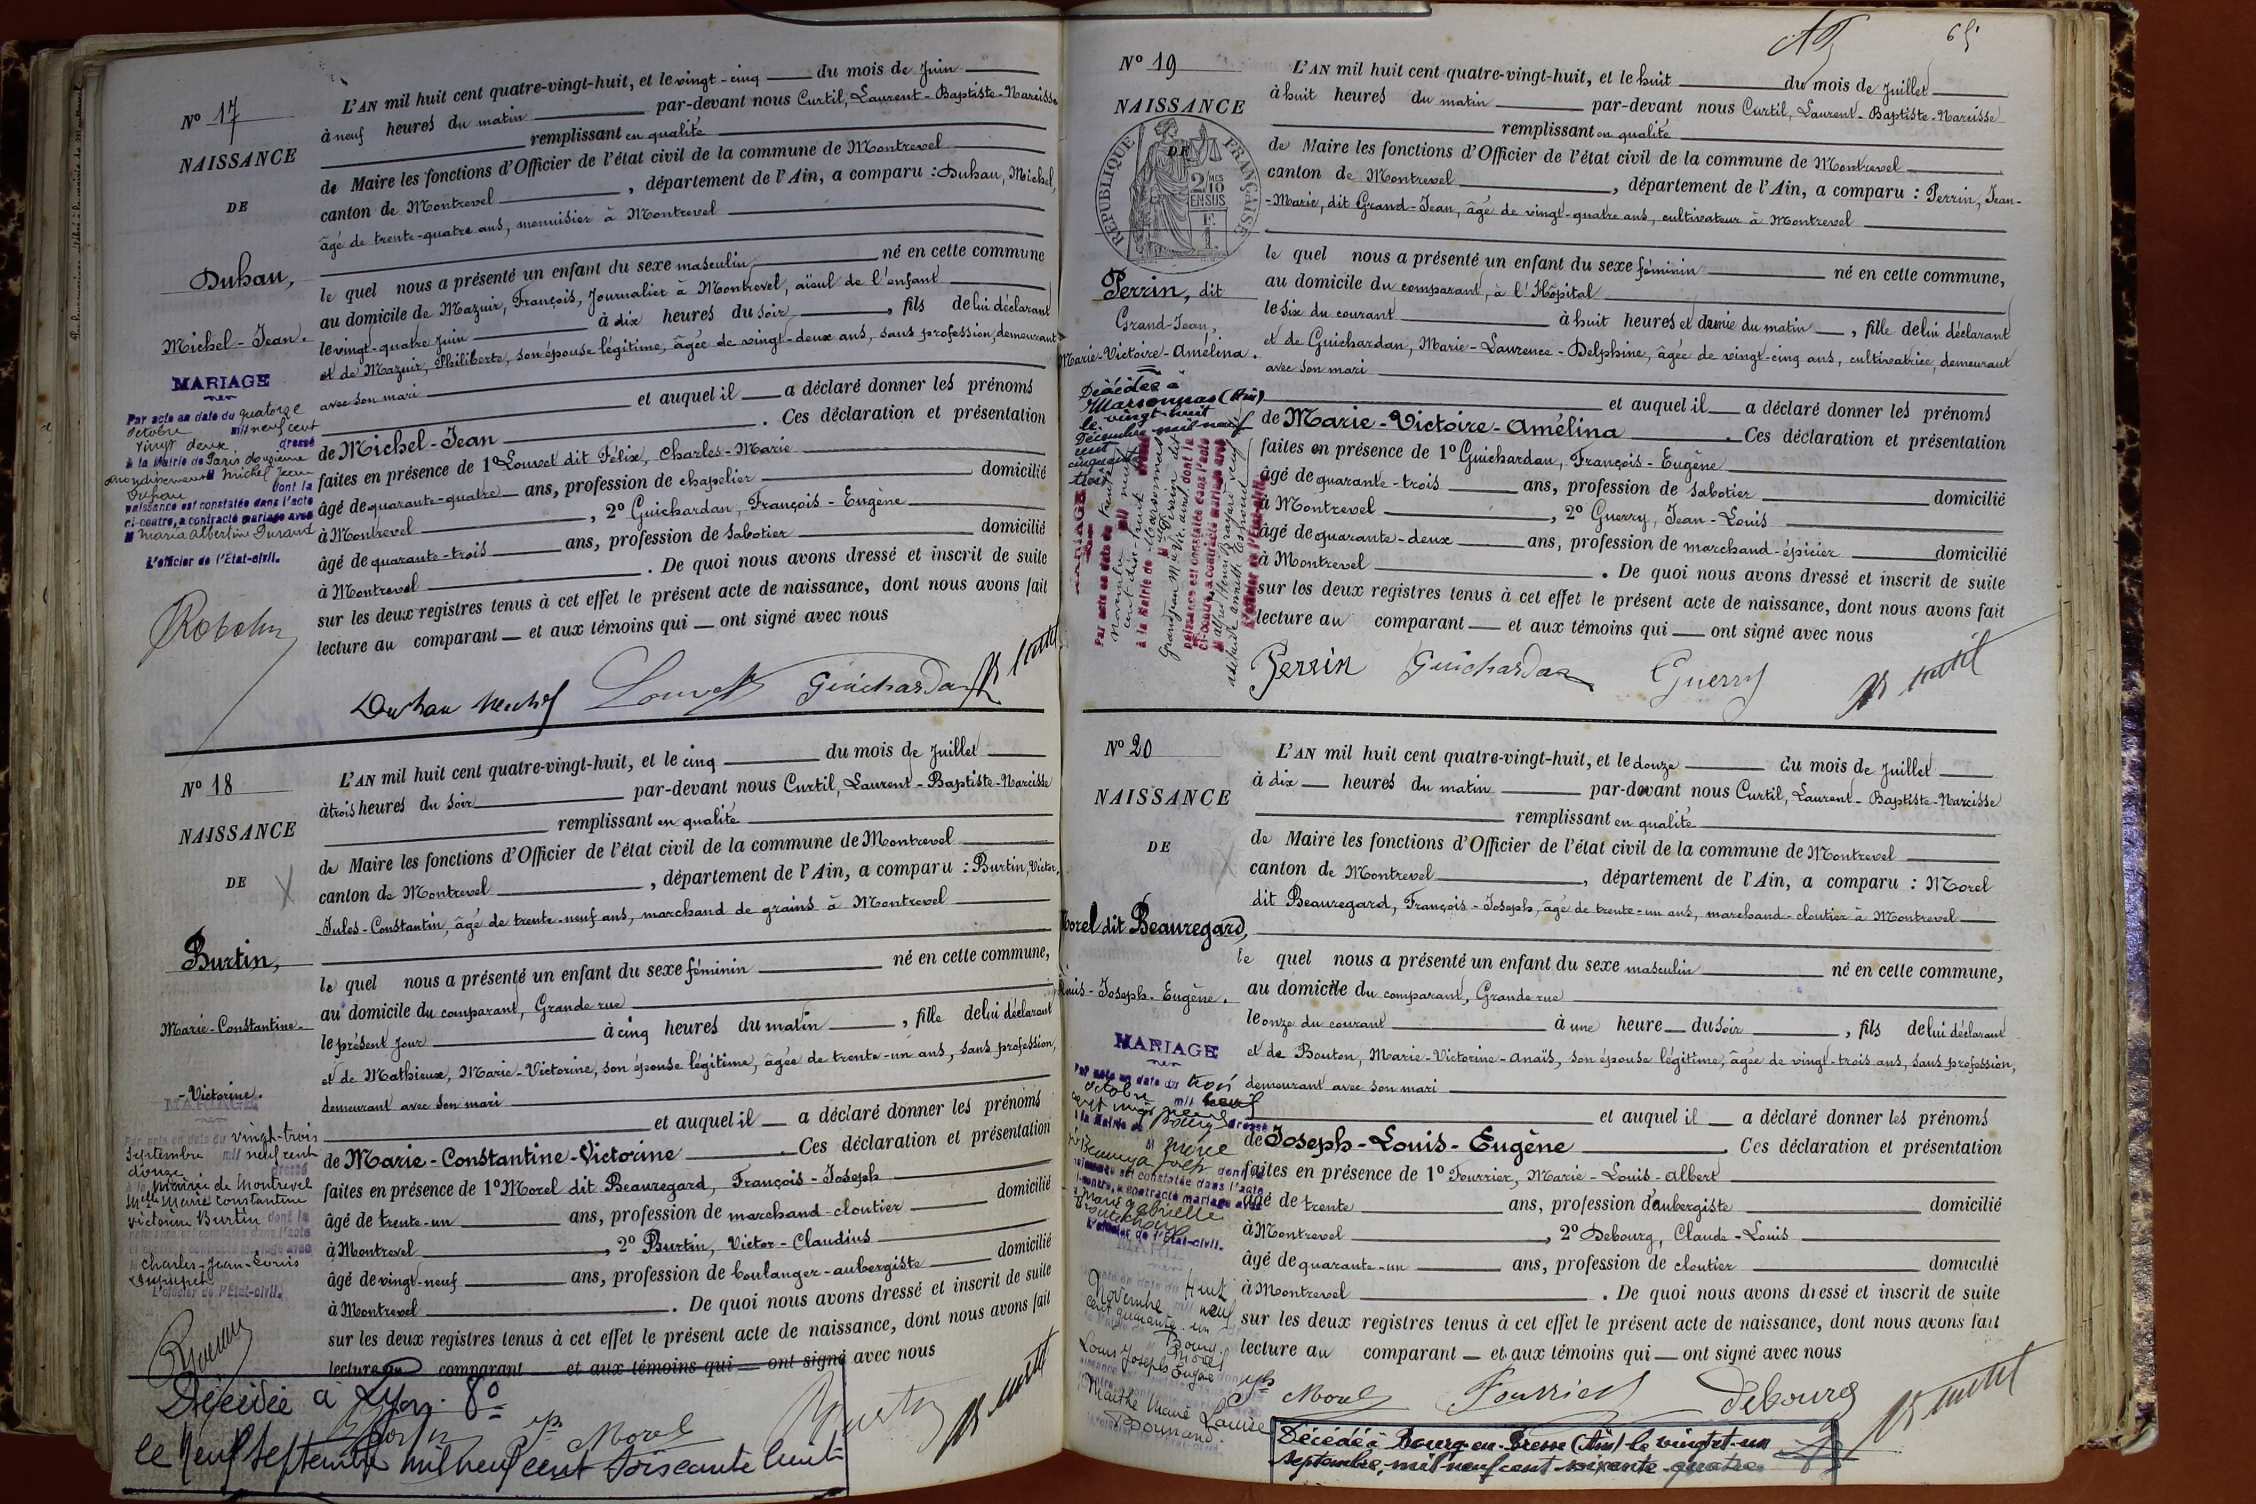 N° 17
NAISSANCE
DE
Duhau,
Michel-Jean.
MARIAGE
Par acte en date du quatorze
octobre mil neuf cent
vingt deux dressé
à la Mairie de Paris douzième
arrondissement M Michel Jean
Duhau dont la
naissance est constatée dans l'acte
ci-contre, a contracté mariage avec
M Maria Albertine Durand
L'officier de l'État-civil.
L'AN mil huit cent quatre-vingt-huit, et le vingt-cinq du mois de Juin
à neuf heures du matin par-devant nous Curtil, Laurent-Baptiste-Narcisse
remplissant en qualité
de Maire les fonctions d'Officier de l'état civil de la commune de Montrevel
canton de Montrevel, département de l'Ain, a comparu : Duhau, Michel,
âgé de trente-quatre ans, menuisier à Montrevel
le quel nous a présenté un enfant du sexe masculin né en cette commune
au domicile de Mazuir, François, Journalier à Montrevel, aïeul de l'enfant
le vingt-quatre Juin à dix heures du soir, fils de lui déclarant
et de Mazuir, Philiberte, son épouse légitime, âgée de vingt-deux ans, sans profession, demeurant
avec son mari
et auquel il a déclaré donner les prénoms
de Michel-Jean. Ces déclaration et présentation
faites en présence de 1° Louvet dit Félix, Charles-Marie
âgé de quarante-quatre ans, profession de chapelier domicilié
à Montrevel, 2° Guichardan, François-Eugène
âgé de quarante-trois ans, profession de Sabotier domicilié
à Montrevel. De quoi nous avons dressé et inscrit de suite
sur les deux registres tenus à cet effet le présent acte de naissance, dont nous avons fait
lecture au comparant et aux témoins qui ont signé avec nous
Duhau Michel Louvet Guichardan
N° 18
NAISSANCE
DE
Burtin,
Marie-Constantine-
-Victorine.
MARIAGE
Par acte en date du vingt-trois
Septembre mil neuf cent
douze dressé
à la Mairie de Montrevel
Melle Marie Constantine
Victorine Burtin dont la
naissance est constatée dans l'acte
ci-contre, a contracté mariage avec
Charles-Jean-Louis
L'officier de l'État-civil.
L'AN mil huit cent quatre-vingt-huit, et le cinq du mois de Juillet
à trois heures du soir par-devant nous Curtil, Laurent-Baptiste-Narcisse
remplissant en qualité
de Maire les fonctions d'Officier de l'état civil de la commune de Montrevel
canton de Montrevel, département de l'Ain, a comparu : Burtin, Victor,
Jules-Constantin, âgé de trente-neuf ans, marchand de grains à Montrevel
le quel nous a présenté un enfant du sexe féminin né en cette commune,
au domicile du comparant, Grande rue
le présent jour à cinq heures du matin, fille de lui déclarant
et de Mathieux, Marie-Victorine, son épouse légitime, âgée de trente-un ans, sans profession,
demeurant avec son mari
et auquel il a déclaré donner les prénoms
de Marie-Constantine-Victorine. Ces déclaration et présentation
faites en présence de 1° Morel dit Beauregard, François-Joseph
âgé de trente-un ans, profession de marchand-cloutier domicilié
à Montrevel, 2° Burtin, Victor-Claudius
âgé de vingt-neuf ans, profession de boulanger-aubergiste domicilié
à Montrevel. De quoi nous avons dressé et inscrit de suite
sur les deux registres tenus à cet effet le présent acte de naissance, dont nous avons fait
lecture au comparant et aux témoins qui ont signé avec nous
Décédée à Lyon 8°
le neuf septembre mil neuf cent soixante huit
Burtin Jph Morel Burtin
65
N° 19
NAISSANCE
DE
RÉPUBLIQUE FRANÇAISE
2/10MES
EN SUS
Perrin, dit
Grand-Jean,
Marie-Victoire-Amélina.
Décédée à
Marsonnas (Ain)
le vingt-huit
Décembre mil neuf
cent
cinquante
trois
MARIAGE
L'AN mil huit cent quatre-vingt-huit, et le huit du mois de Juillet
à huit heures du matin par-devant nous Curtil, Laurent-Baptiste-Narcisse
remplissant en qualité
de Maire les fonctions d'Officier de l'état civil de la commune de Montrevel
canton de Montrevel, département de l'Ain, a comparu : Perrin, Jean-
-Marie, dit Grand-Jean, âgé de vingt-quatre ans, cultivateur à Montrevel
le quel nous a présenté un enfant du sexe féminin né en cette commune,
au domicile du comparant, à l'Hôpital
le six du courant à huit heures et demie du matin, fille de lui déclarant
et de Guichardan, Marie-Laurence-Delphine, âgée de vingt-cinq ans, cultivatrice, demeurant
avec son mari
et auquel il a déclaré donner les prénoms
de Marie-Victoire-Amélina. Ces déclaration et présentation
faites en présence de 1° Guichardan, François-Eugène
âgé de quarante-trois ans, profession de sabotier domicilié
à Montrevel, 2° Guerry, Jean-Louis
âgé de quarante-deux ans, profession de marchand-épicier domicilié
à Montrevel. De quoi nous avons dressé et inscrit de suite
sur les deux registres tenus à cet effet le présent acte de naissance, dont nous avons fait
lecture au comparant et aux témoins qui ont signé avec nous
Perrin Guichardan Guerry
N° 20
NAISSANCE
DE
Morel dit Beauregard,
Louis-Joseph-Eugène.
MARIAGE
Par acte en date du trois
octobre mil neuf
cent
à la Mairie de Bourg dressé
L'officier de l'État-civil.
Huit
Novembre mil neuf
cent quarante-un
Bourg
Morel
Louis Joseph Eugène
Marthe Marie Louise
L'AN mil huit cent quatre-vingt-huit, et le douze du mois de Juillet
à dix heures du matin par-devant nous Curtil, Laurent-Baptiste-Narcisse
remplissant en qualité
de Maire les fonctions d'Officier de l'état civil de la commune de Montrevel
canton de Montrevel, département de l'Ain, a comparu : Morel
dit Beauregard, François-Joseph, âgé de trente-un ans, marchand-cloutier à Montrevel
le quel nous a présenté un enfant du sexe masculin né en cette commune,
au domicile du comparant, Grande rue
le onze du courant à une heure du soir, fils de lui déclarant
et de Bouton, Marie-Victorine-Anaïs, son épouse légitime, âgée de vingt-trois ans, sans profession,
demeurant avec son mari
et auquel il a déclaré donner les prénoms
de Joseph-Louis-Eugène. Ces déclaration et présentation
faites en présence de 1° Fourrier, Marie-Louis-Albert
âgé de trente ans, profession d'aubergiste domicilié
à Montrevel, 2° Debourg, Claude-Louis
âgé de quarante-un ans, profession de cloutier domicilié
à Montrevel. De quoi nous avons dressé et inscrit de suite
sur les deux registres tenus à cet effet le présent acte de naissance, dont nous avons fait
lecture au comparant et aux témoins qui ont signé avec nous
Jph Morel Fourrier Debourg
Décédé à Bourg-en-Bresse (Ain) le vingt-et-un
septembre, mil neuf cent soixante-quatre